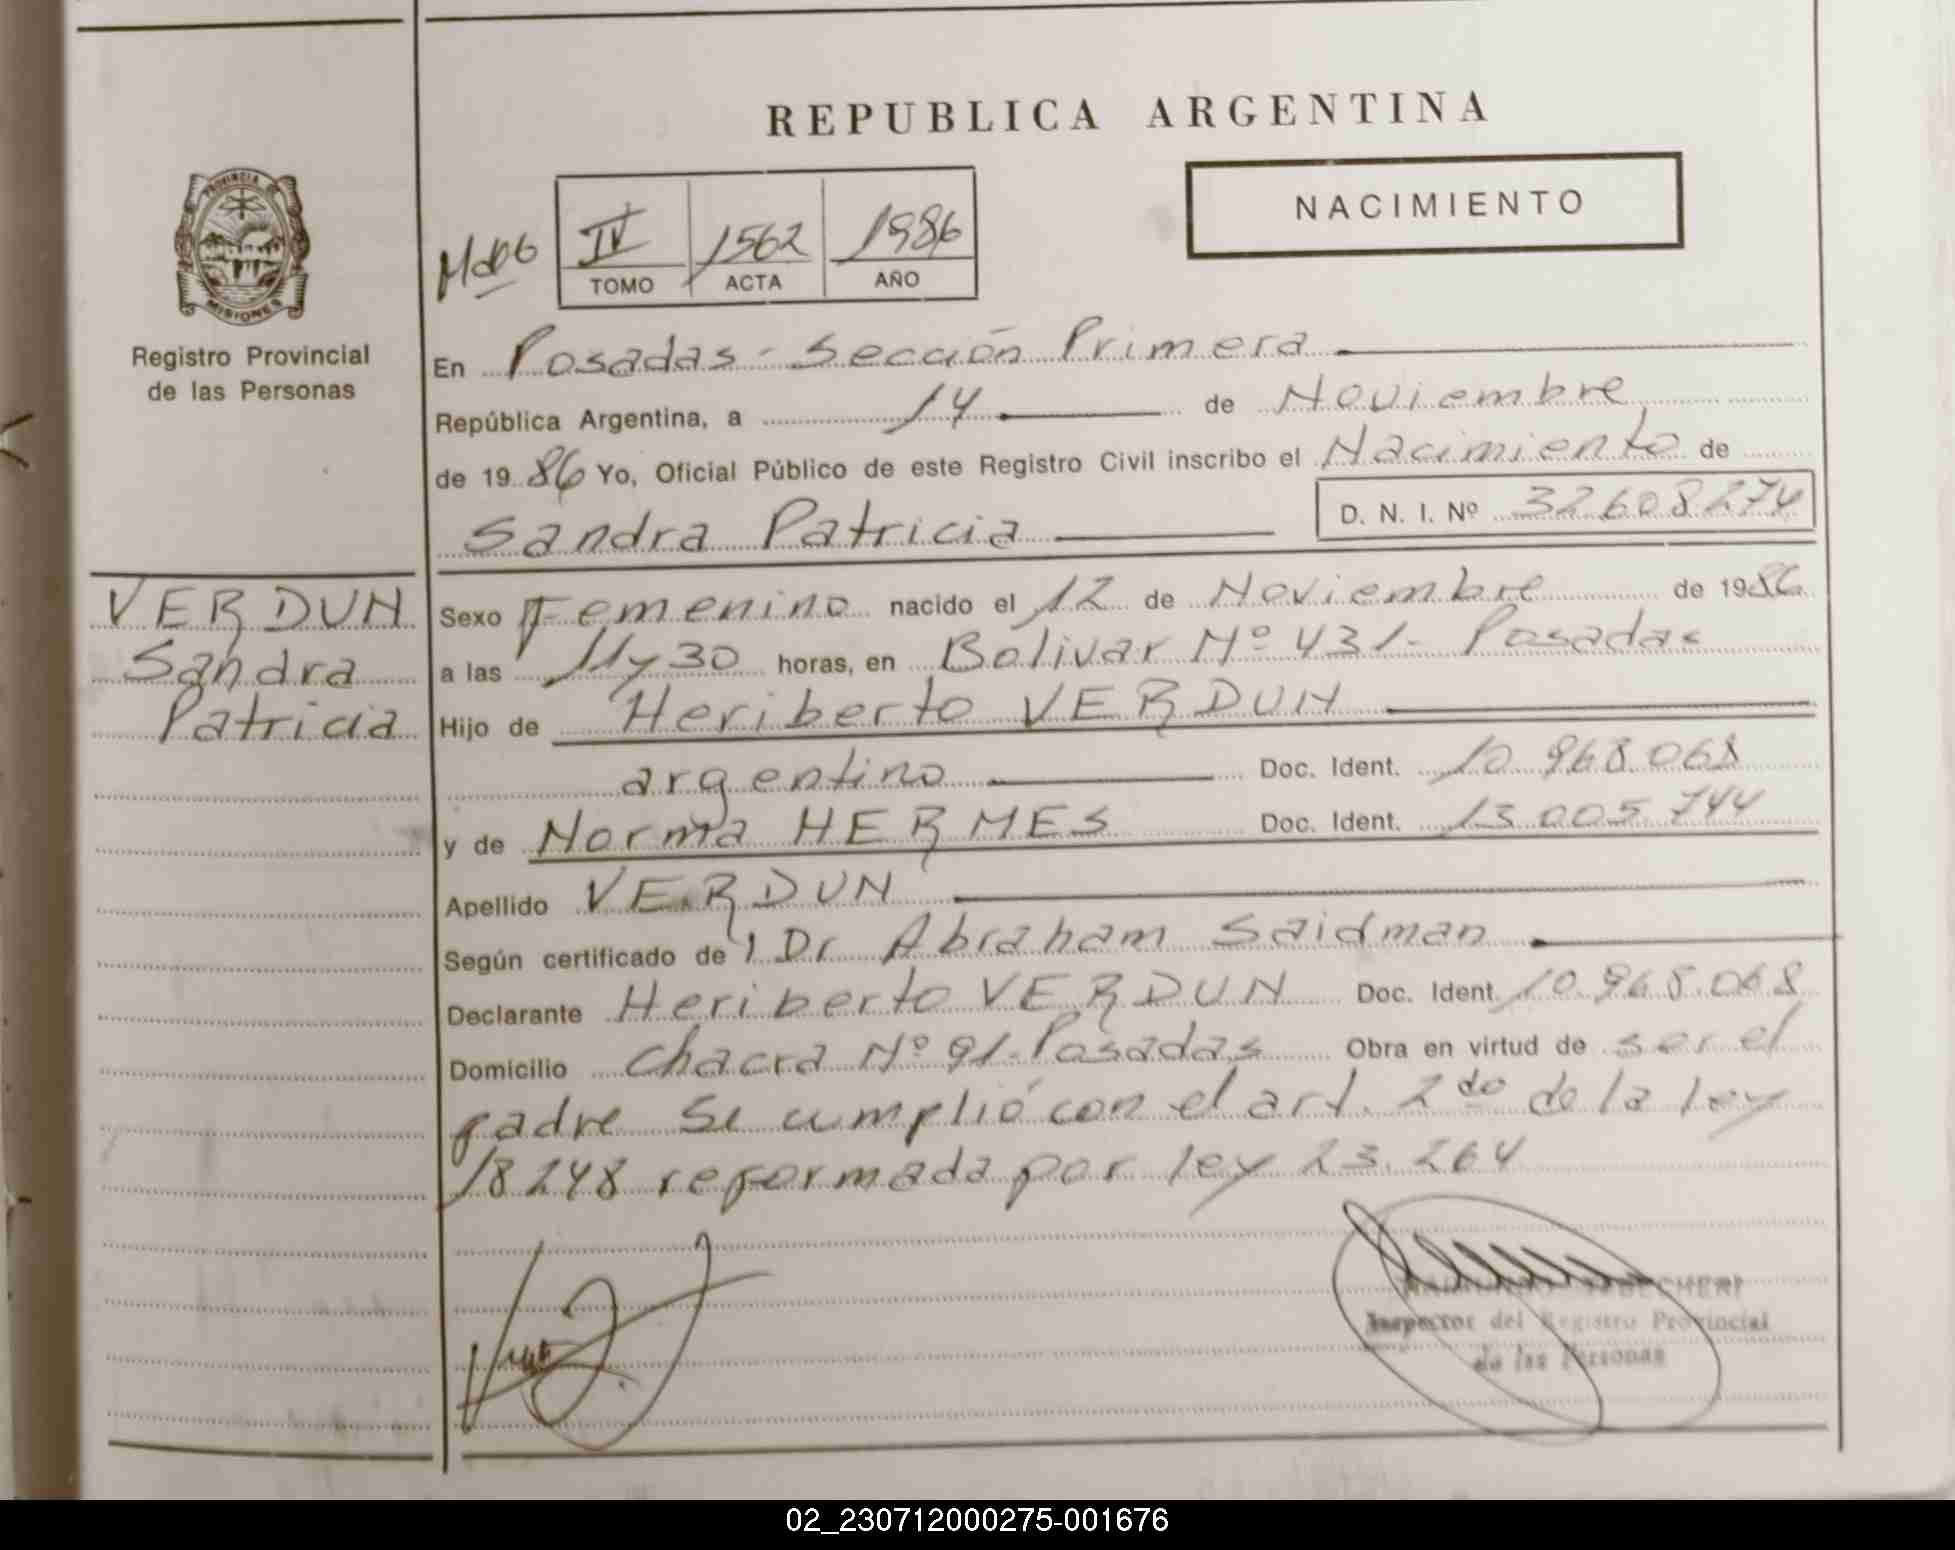 REPUBLICA ARGENTINA
NACIMIENTO
PROVINCIA DE
MISIONES
Registro Provincial
de las Personas
IV 1562 1986
TOMO ACTA AÑO
En Posadas - Sección Primera
República Argentina, a 14 de Noviembre
de 1986 Yo, Oficial Público de este Registro Civil inscribo el Nacimiento de
Sandra Patricia D. N. I. Nº 32608274
VERDUN
Sandra
Patricia
Sexo Femenino nacido el 12 de Noviembre de 1986
a las 11 y 30 horas, en Bolivar Nº 431- Posadas
Hijo de Heriberto VERDUN
argentino Doc. Ident. 10.968.068
y de Norma HERMES Doc. Ident. 13.005.744
Apellido VERDUN
Según certificado de l Dr. Abraham Saidman
Declarante Heriberto VERDUN Doc. Ident. 10.968.068
Domicilio Chacra Nº 91- Posadas Obra en virtud de ser el
padre Se cumplió con el art. 2do de la ley
18248 reformada por ley 23.264
Inspector del Registro Provincial
de las Personas
02_230712000275-001676